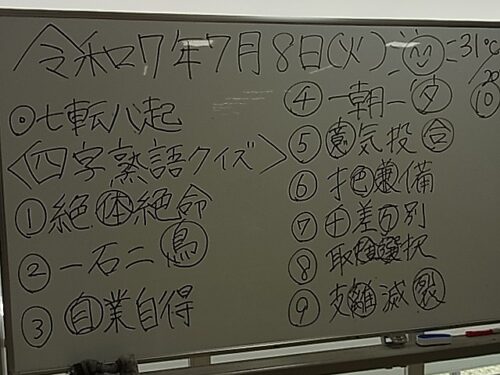 令和7年7月8日(火) 31℃
◎七転八起
<四字熟語クイズ>
①絶体絶命
②一石二鳥
③自業自得
④一朝一夕
⑤意気投合
⑥才色兼備
⑦千差万別
⑧取捨選択
⑨支離滅裂
⑩